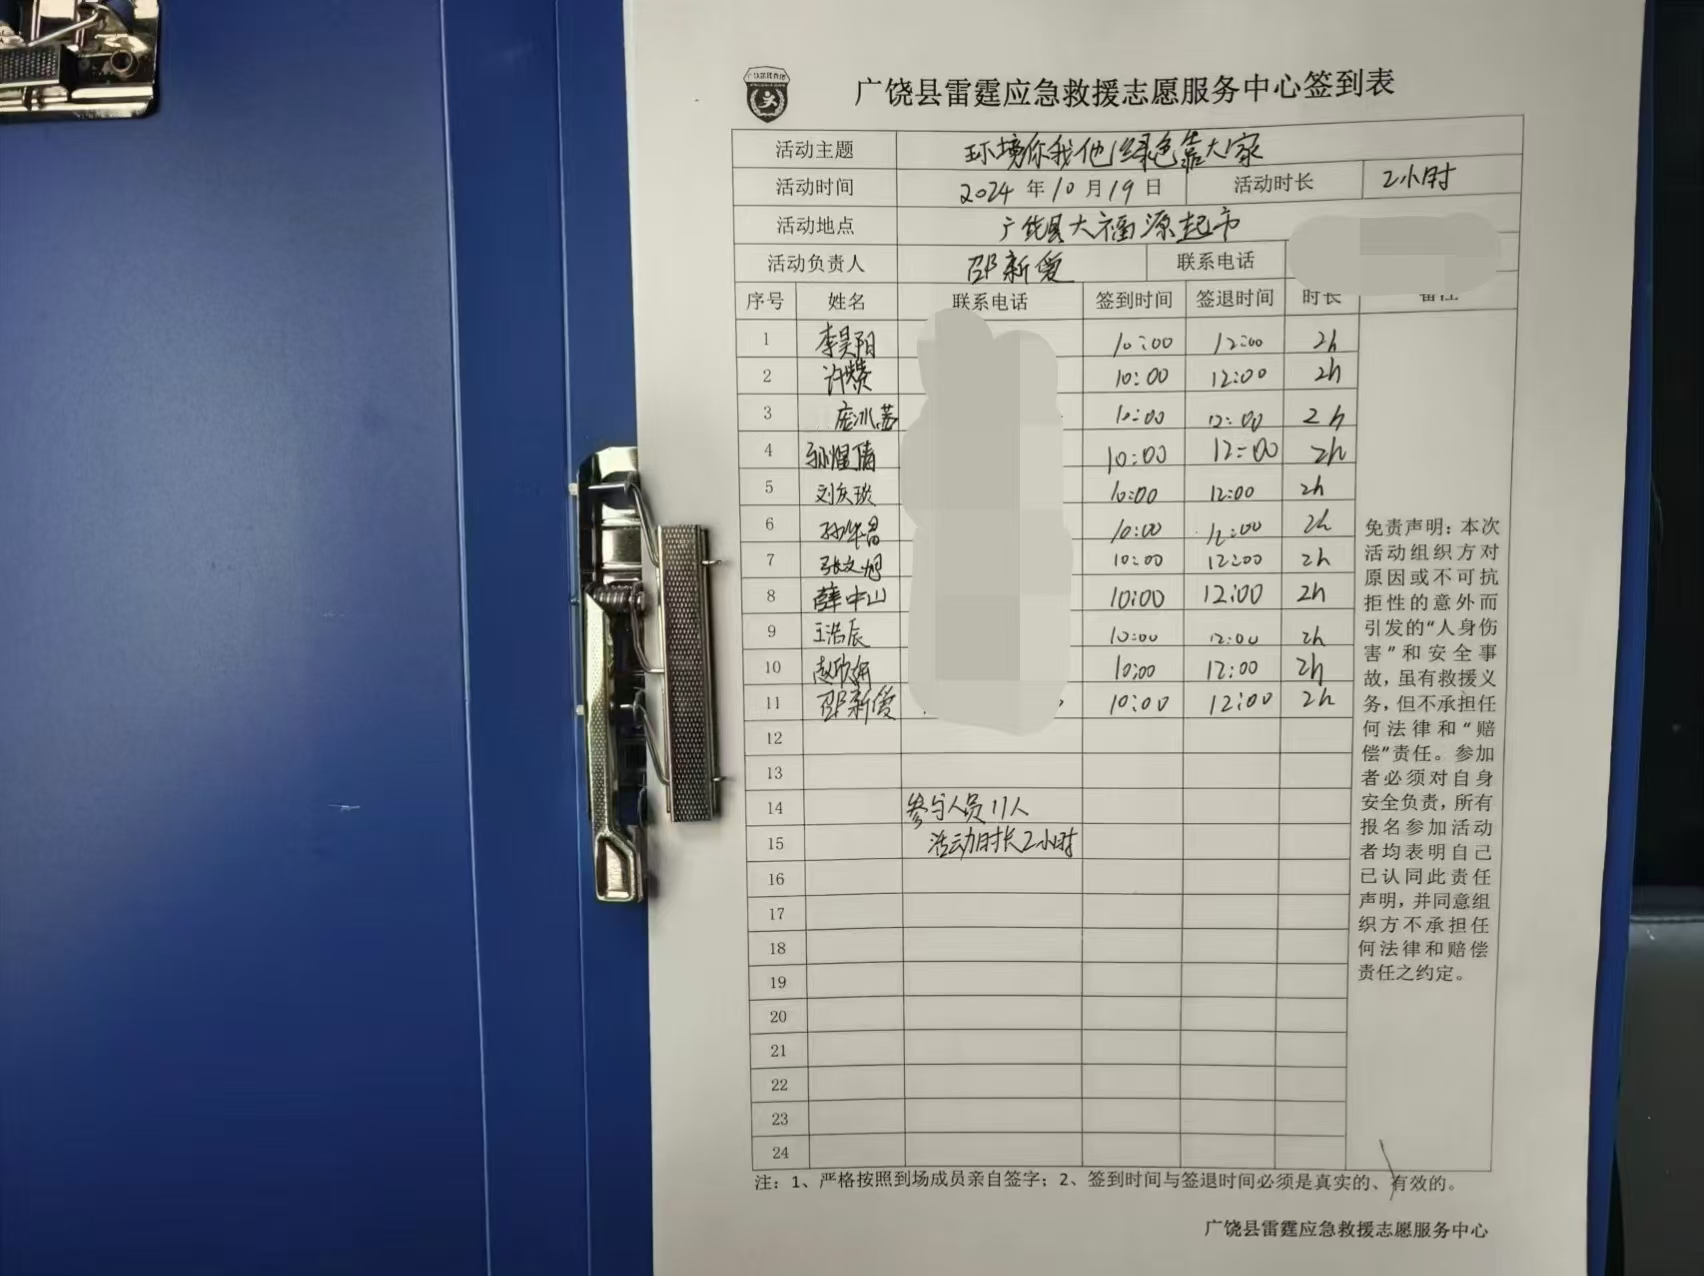 广饶县雷霆应急救援志愿服务中心签到表
活动主题 环境你我他绿色靠大家
活动时间 2024 年 10 月 19 日 活动时长 2小时
活动地点 广饶县大福源起市
活动负责人 邵新爱 联系电话
序号 姓名 联系电话 签到时间 签退时间 时长 备注
1 李昊阳 10:00 12:00 2h
2 许赟 10:00 12:00 2h
3 庞冰 10:00 12:00 2h
4 孙煜倩 10:00 12:00 2h
5 刘庆琰 10:00 12:00 2h
6 孙华 10:00 12:00 2h
7 张文旭 10:00 12:00 2h
8 薛中山 10:00 12:00 2h
9 王浩辰 10:00 12:00 2h
10 赵欣 10:00 12:00 2h
11 邵新爱 10:00 12:00 2h
12
13
14 参与人员11人
15 活动时长2小时
16
17
18
19
20
21
22
23
24
免责声明：本次
活动组织方对
原因或不可抗
拒性的意外而
引发的“人身伤
害”和安全事
故，虽有救援义
务，但不承担任
何法律和“赔
偿”责任。参加
者必须对自身
安全负责，所有
报名参加活动
者均表明自己
已认同此责任
声明，并同意组
织方不承担任
何法律和赔偿
责任之约定。
注：1、严格按照到场成员亲自签字；2、签到时间与签退时间必须是真实的、有效的。
广饶县雷霆应急救援志愿服务中心